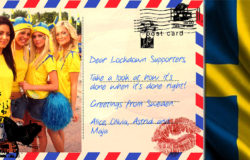 post card
Dear Lockdown Supporters,
Take a look of how it's
done when it's done right!
Greetings from Sweden
Alice, Olivia, Astrid and
Maja